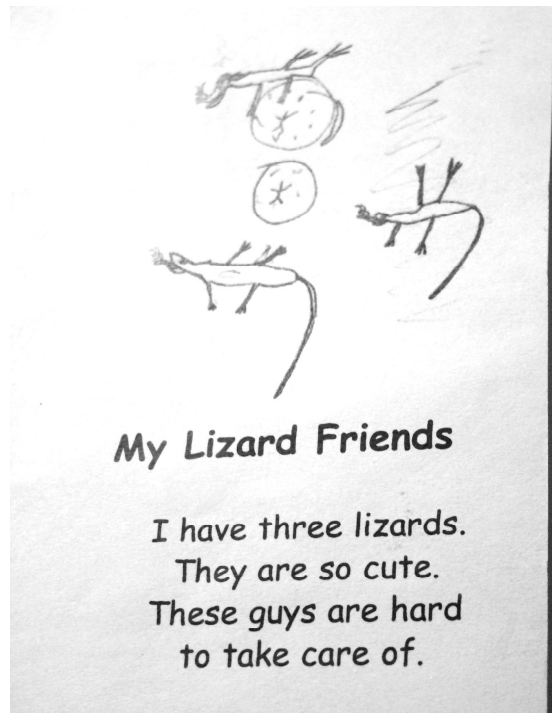 My Lizard Friends
I have three lizards.
They are so cute.
These guys are hard
to take care of.